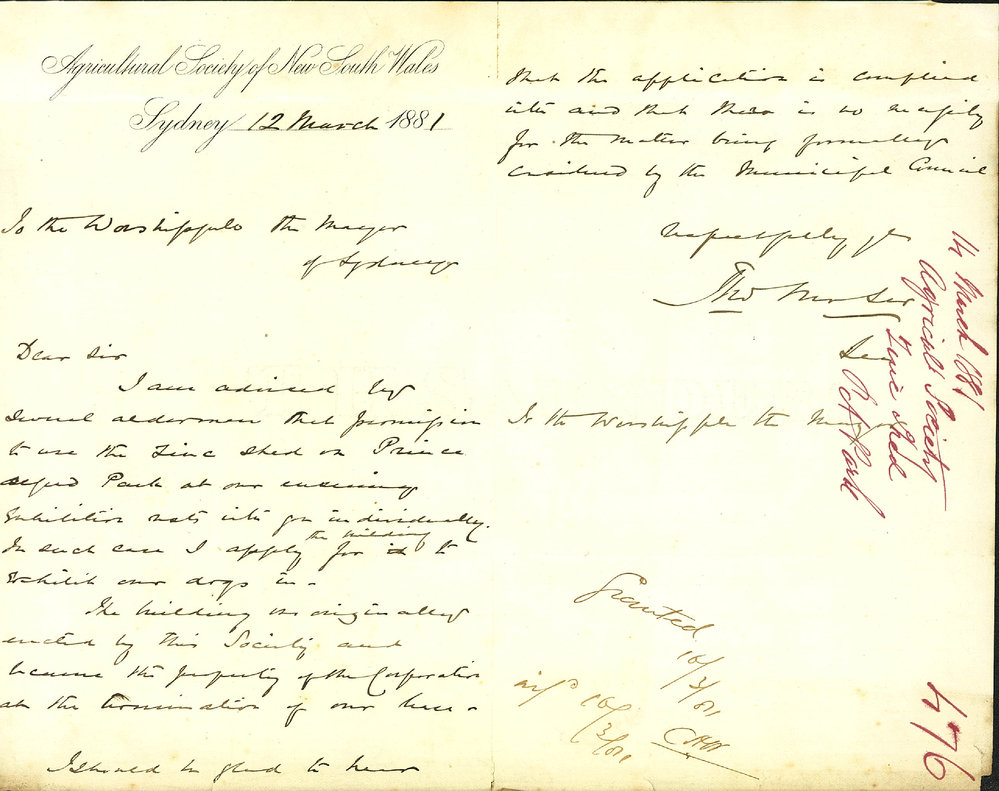 Agricultural Society of New South Wales
Sydney 12 March 1881
To the Worshipful the Mayor
of Sydney
Dear Sir
I am advised by
several aldermen that permission
to use the Zinc Shed on Prince
Alfred Park at our ensuing
Exhibition rests with you individually.
In such case I apply for the building to
exhibit our dogs in.
The building was originally
erected by this Society and
became the property of the Corporation
at the termination of our lease.
I should be glad to hear
that the application is complied
with and that there is no necessity
for the matter being formally
considered by the Municipal Council
Respectfully yrs
Sec
To the Worshipful the Mayor
Granted
16/3/81
infd 16/3/81
14 March 1881
Agricul Society
Zinc Shed
P A Park
476